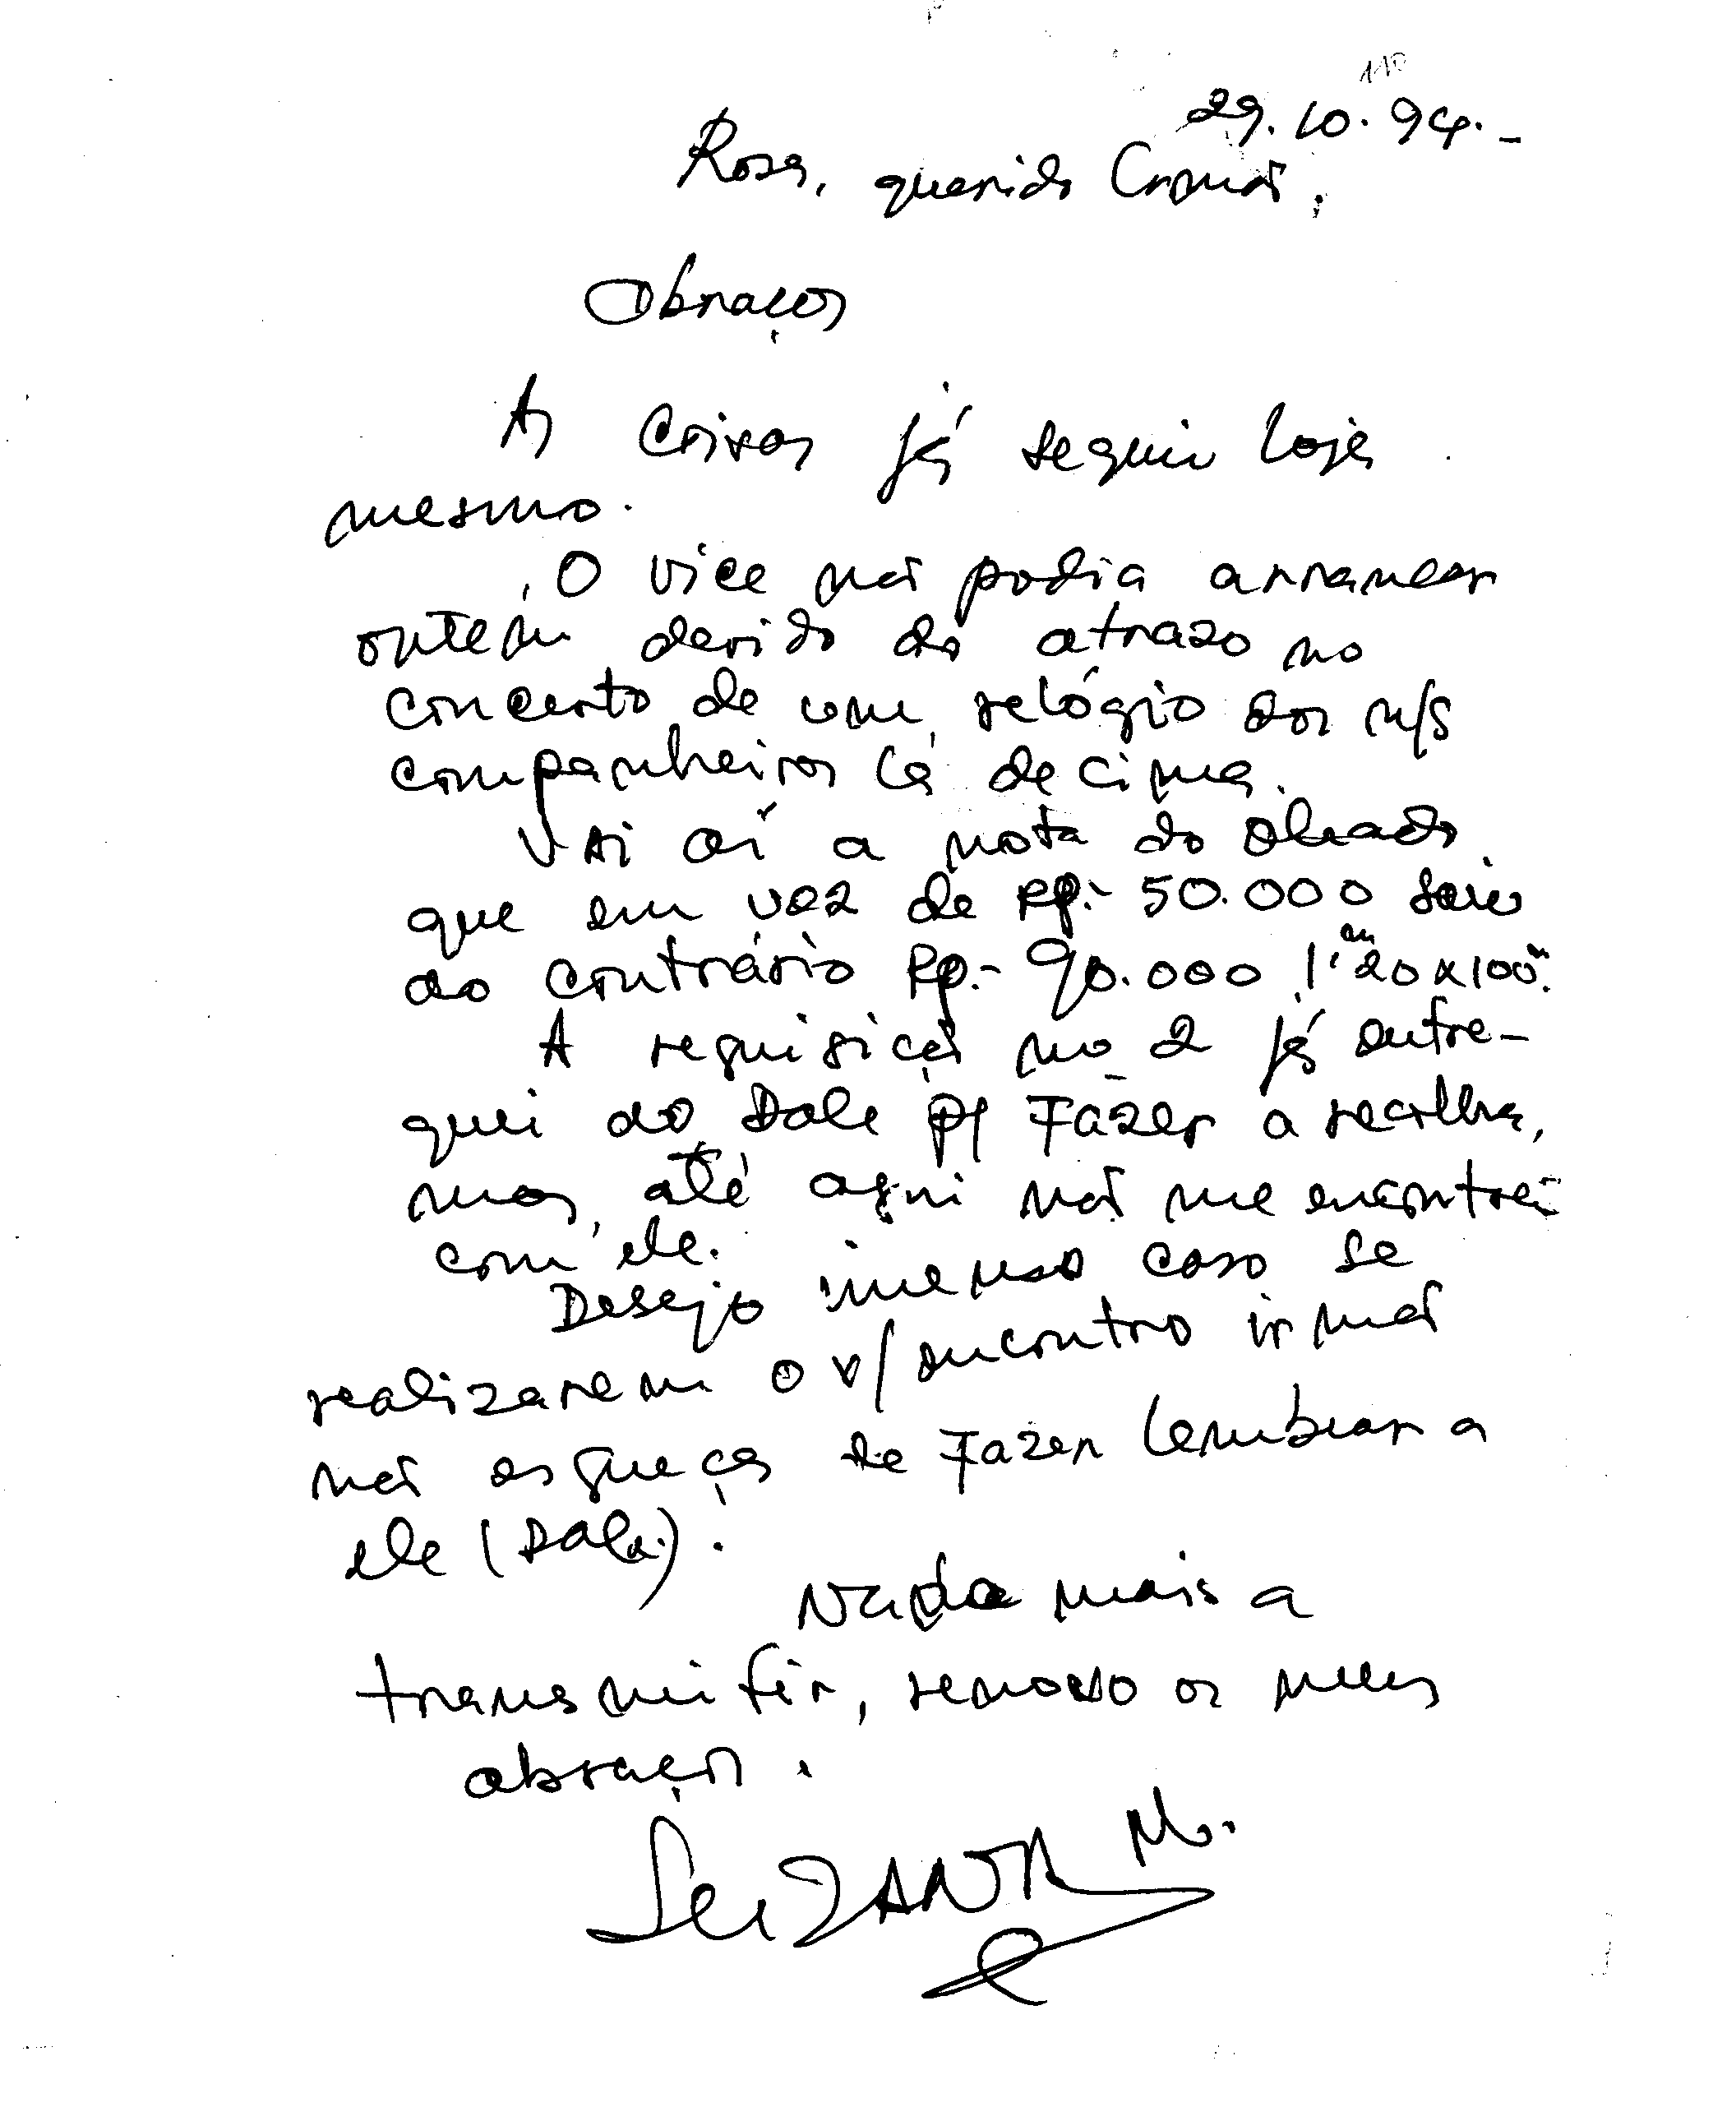 110
29.10.94.-
Rosa, querida Irmã,
Abraços
As coisas já seguiu loje
mesmo.
O vice não podia arrancar
ontem devido ao atrazo no
concerto de um relógio dos n/s
companheiros lá de cima.
Vai aí a nota do oleado
que em vez de Rp.- 50.000 saiu
ao contrário Rp.- 90.000 !"20x100".
A requisição no 2 já entre-
guei ao Dale p/ Fazer a recolha,
mas, até aqui não me encontrei
com ele.
Desejo imenso caso se
realizarem o v/ encontro irmã
não esqueça de Fazer lembrar a
ele (Dale).
Nada mais a
transmitir, renovo os meus
abraços.